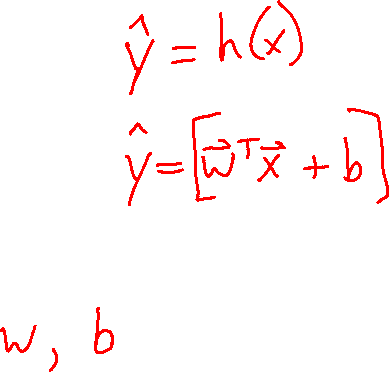 ŷ = h(x)
ŷ = [w⃗ᵀx⃗ + b]
w, b